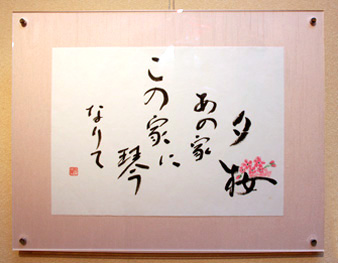 夕桜
あの家
この家に
琴
なりて